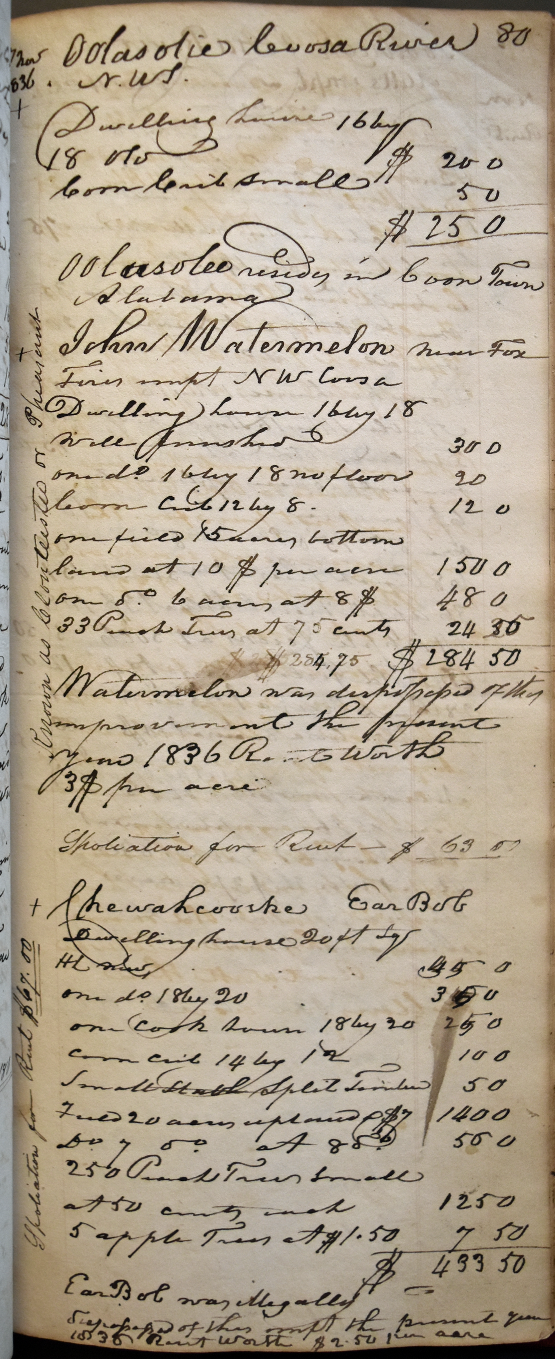 Oolasotie Coosa River 80
7 Nov 1836. N.W.S.
+
Dwelling house 16 by
18 old $ 20 0
Corn Crib small 5 0
$ 25 0
Oolasotee resides in Coon Town
Alabama
+ John Watermelon near Fox
Fires impt N W Coosa
Dwelling house 16 by 18
well finished 30 0
one do 16 by 18 no floor 20
Corn Crib 12 by 8. 12 0
one field 15 acres bottom
land at 10 $ per acre 150 0
one do 6 acres at 8 $ 48 0
33 Peach Trees at 75 cents 24
284,75 $ 284 50
Watermelon was dispossessed of this
improvement the present
year 1836 Rent Worth
3 $ per acre
Spoliation for Rent — $ 63
Known as or Pheasant
+ Chewahcooske Ear Bob
Dwelling house 20 ft sqr
new 45 0
one do 18 by 20 0
one Cook house 18 by 20 0
corn crib 14 by 12 10 0
Small Stable Split Timber 5 0
Field 20 acres upland @ $7 140 0
Do 7 do at 8 56 0
250 Peach Trees Small
at 50 cents each 125 0
5 apple Trees at $1.50 7 50
$ 433 50
Ear Bob was illegally
dispossessed of this impt the present year
1836 Rent Worth $2.50 per acre
Spoliation for Rent $67.00